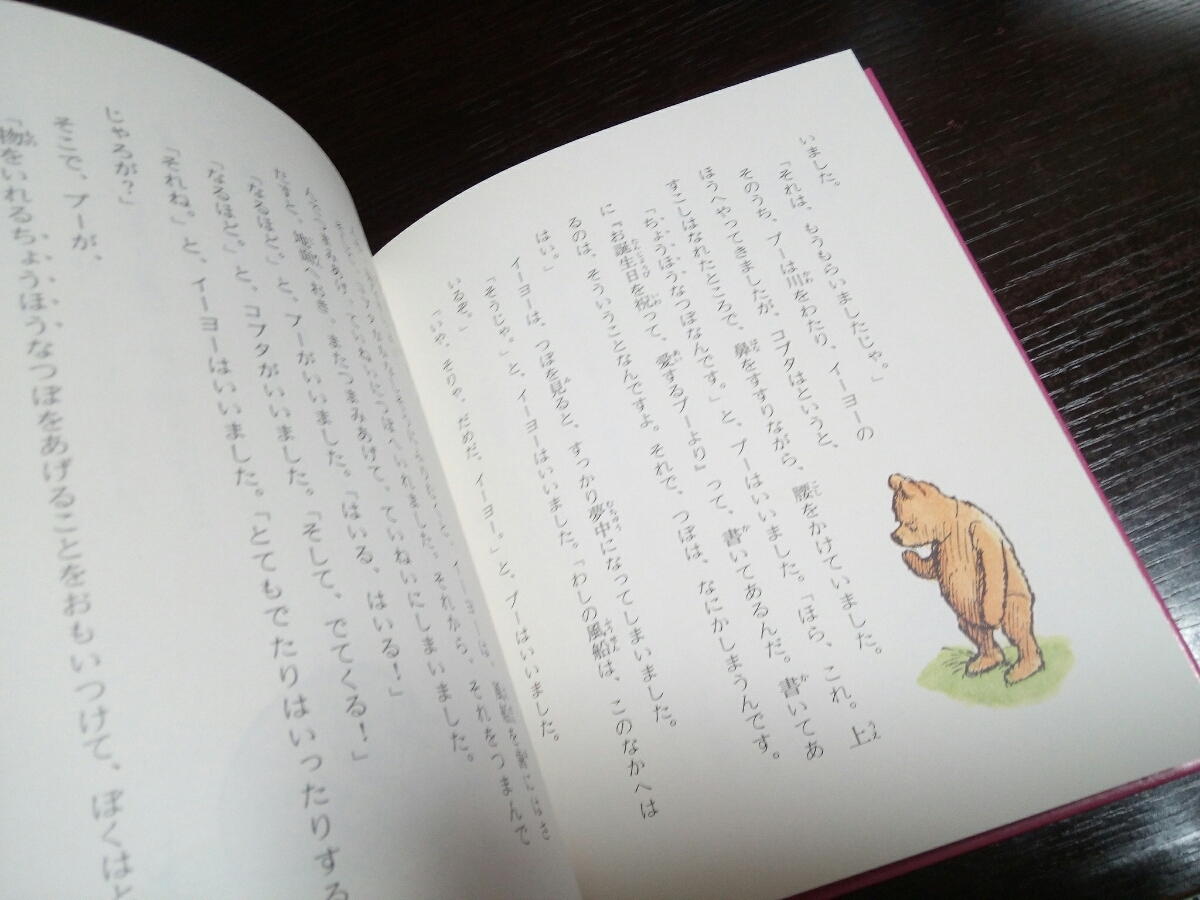 いました。
「それは、もうもらいましたじゃ。」
そのうち、プーは川をわたり、イーヨーの
ほうへやってきましたが、コブタはというと、
すこしはなれたところで、鼻をすすりながら、腰をかけていました。
「ちょうほうなつぼなんです。」と、プーはいいました。「ほら、これ。上
に『お誕生日を祝って、愛するプーより』って、書いてあるんだ。書いてあ
るのは、そういうことなんですよ。それで、つぼは、なにかしまうんです。
はい。」
イーヨーは、つぼを見ると、すっかり夢中になってしまいました。
「そうじゃ。」と、イーヨーはいいました。「わしの風船は、このなかへは
いるぞ。」
「いや、そりゃ、だめだ、イーヨー。」と、プーはいいました。
イーヨーは、風船を歯にはさ
それから、それをつまんで
だすと、地面へおき、またつまみあげて、ていねいにしまいました。
「なるほど。」と、プーがいいました。「はいる。はいる！」
「なるほど。」と、コブタがいいました。「そして、でてくる！」
「それね。」と、イーヨーはいいました。「とてもでたりはいったりする
じゃろが？」
そこで、プーが、
「物をいれるちょうほうなつぼをあげることをおもいつけて、ぼくはと